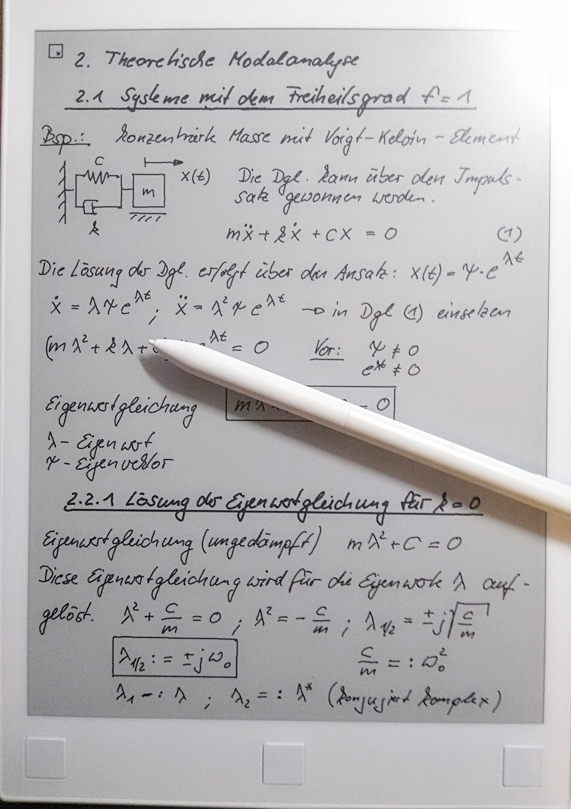 2. Theoretische Modalanalyse
2.1 Systeme mit dem Freiheitsgrad f = 1
Bsp.: konzentrierte Masse mit Voigt-Kelvin-Element
c
x(t)
m
k
Die Dgl. kann über den Impuls-
satz gewonnen werden.
mẍ + kẋ + cx = 0 (1)
Die Lösung der Dgl. erfolgt über den Ansatz: x(t) = Ψ·e^λt
ẋ = λΨe^λt ; ẍ = λ²Ψe^λt → in Dgl (1) einsetzen
(mλ² + kλ + e^λt = 0 Vor: Ψ ≠ 0
e^λt ≠ 0
Eigenwertgleichung mλ = 0
λ - Eigenwert
Ψ - Eigenvektor
2.2.1 Lösung der Eigenwertgleichung für k = 0
Eigenwertgleichung (ungedämpft) mλ² + c = 0
Diese Eigenwertgleichung wird für die Eigenwerte λ auf-
gelöst. λ² + c/m = 0 ; λ² = - c/m ; λ1/2 = ±j√(c/m)
λ1/2 := ±jω₀ c/m =: ω₀²
λ₁ =: λ ; λ₂ =: λ* (konjugiert komplex)